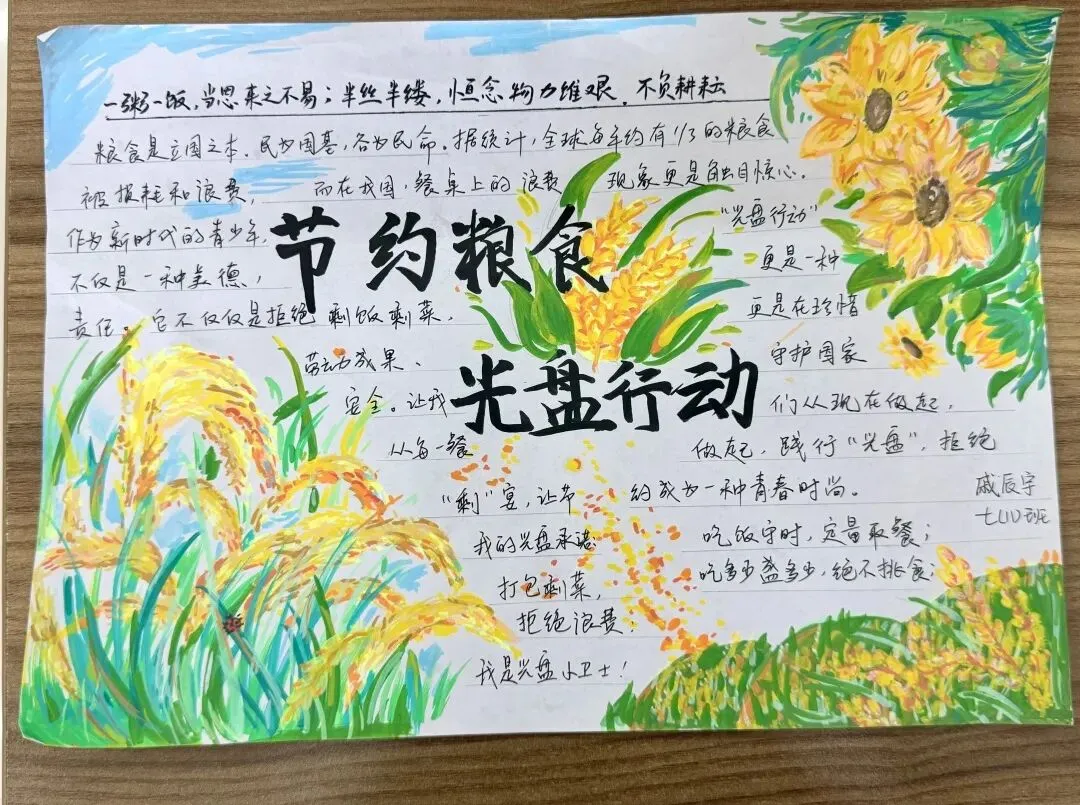 一粥一饭，当思来之不易；半丝半缕，恒念物力维艰，不负耕耘
粮食是立国之本，民为国基，谷为民命。据统计，全球每年约有1/3的粮食
被损耗和浪费， 而在我国，餐桌上的浪费 现象更是触目惊心。
作为新时代的青少年， “光盘行动”
节约粮食
不仅是一种美德， 更是一种
责任。它不仅仅是拒绝剩饭剩菜， 更是在珍惜
劳动成果、 守护国家
光盘行动
安全。让我 们从现在做起，
从每一餐 做起，践行“光盘”，拒绝
“剩”宴，让节 约成为一种青春时尚。
戚辰宇
七(1)班
我的光盘承诺： 吃饭守时，定量取餐；
打包剩菜， 吃多少盛多少，绝不挑食；
拒绝浪费；
我是光盘小卫士！